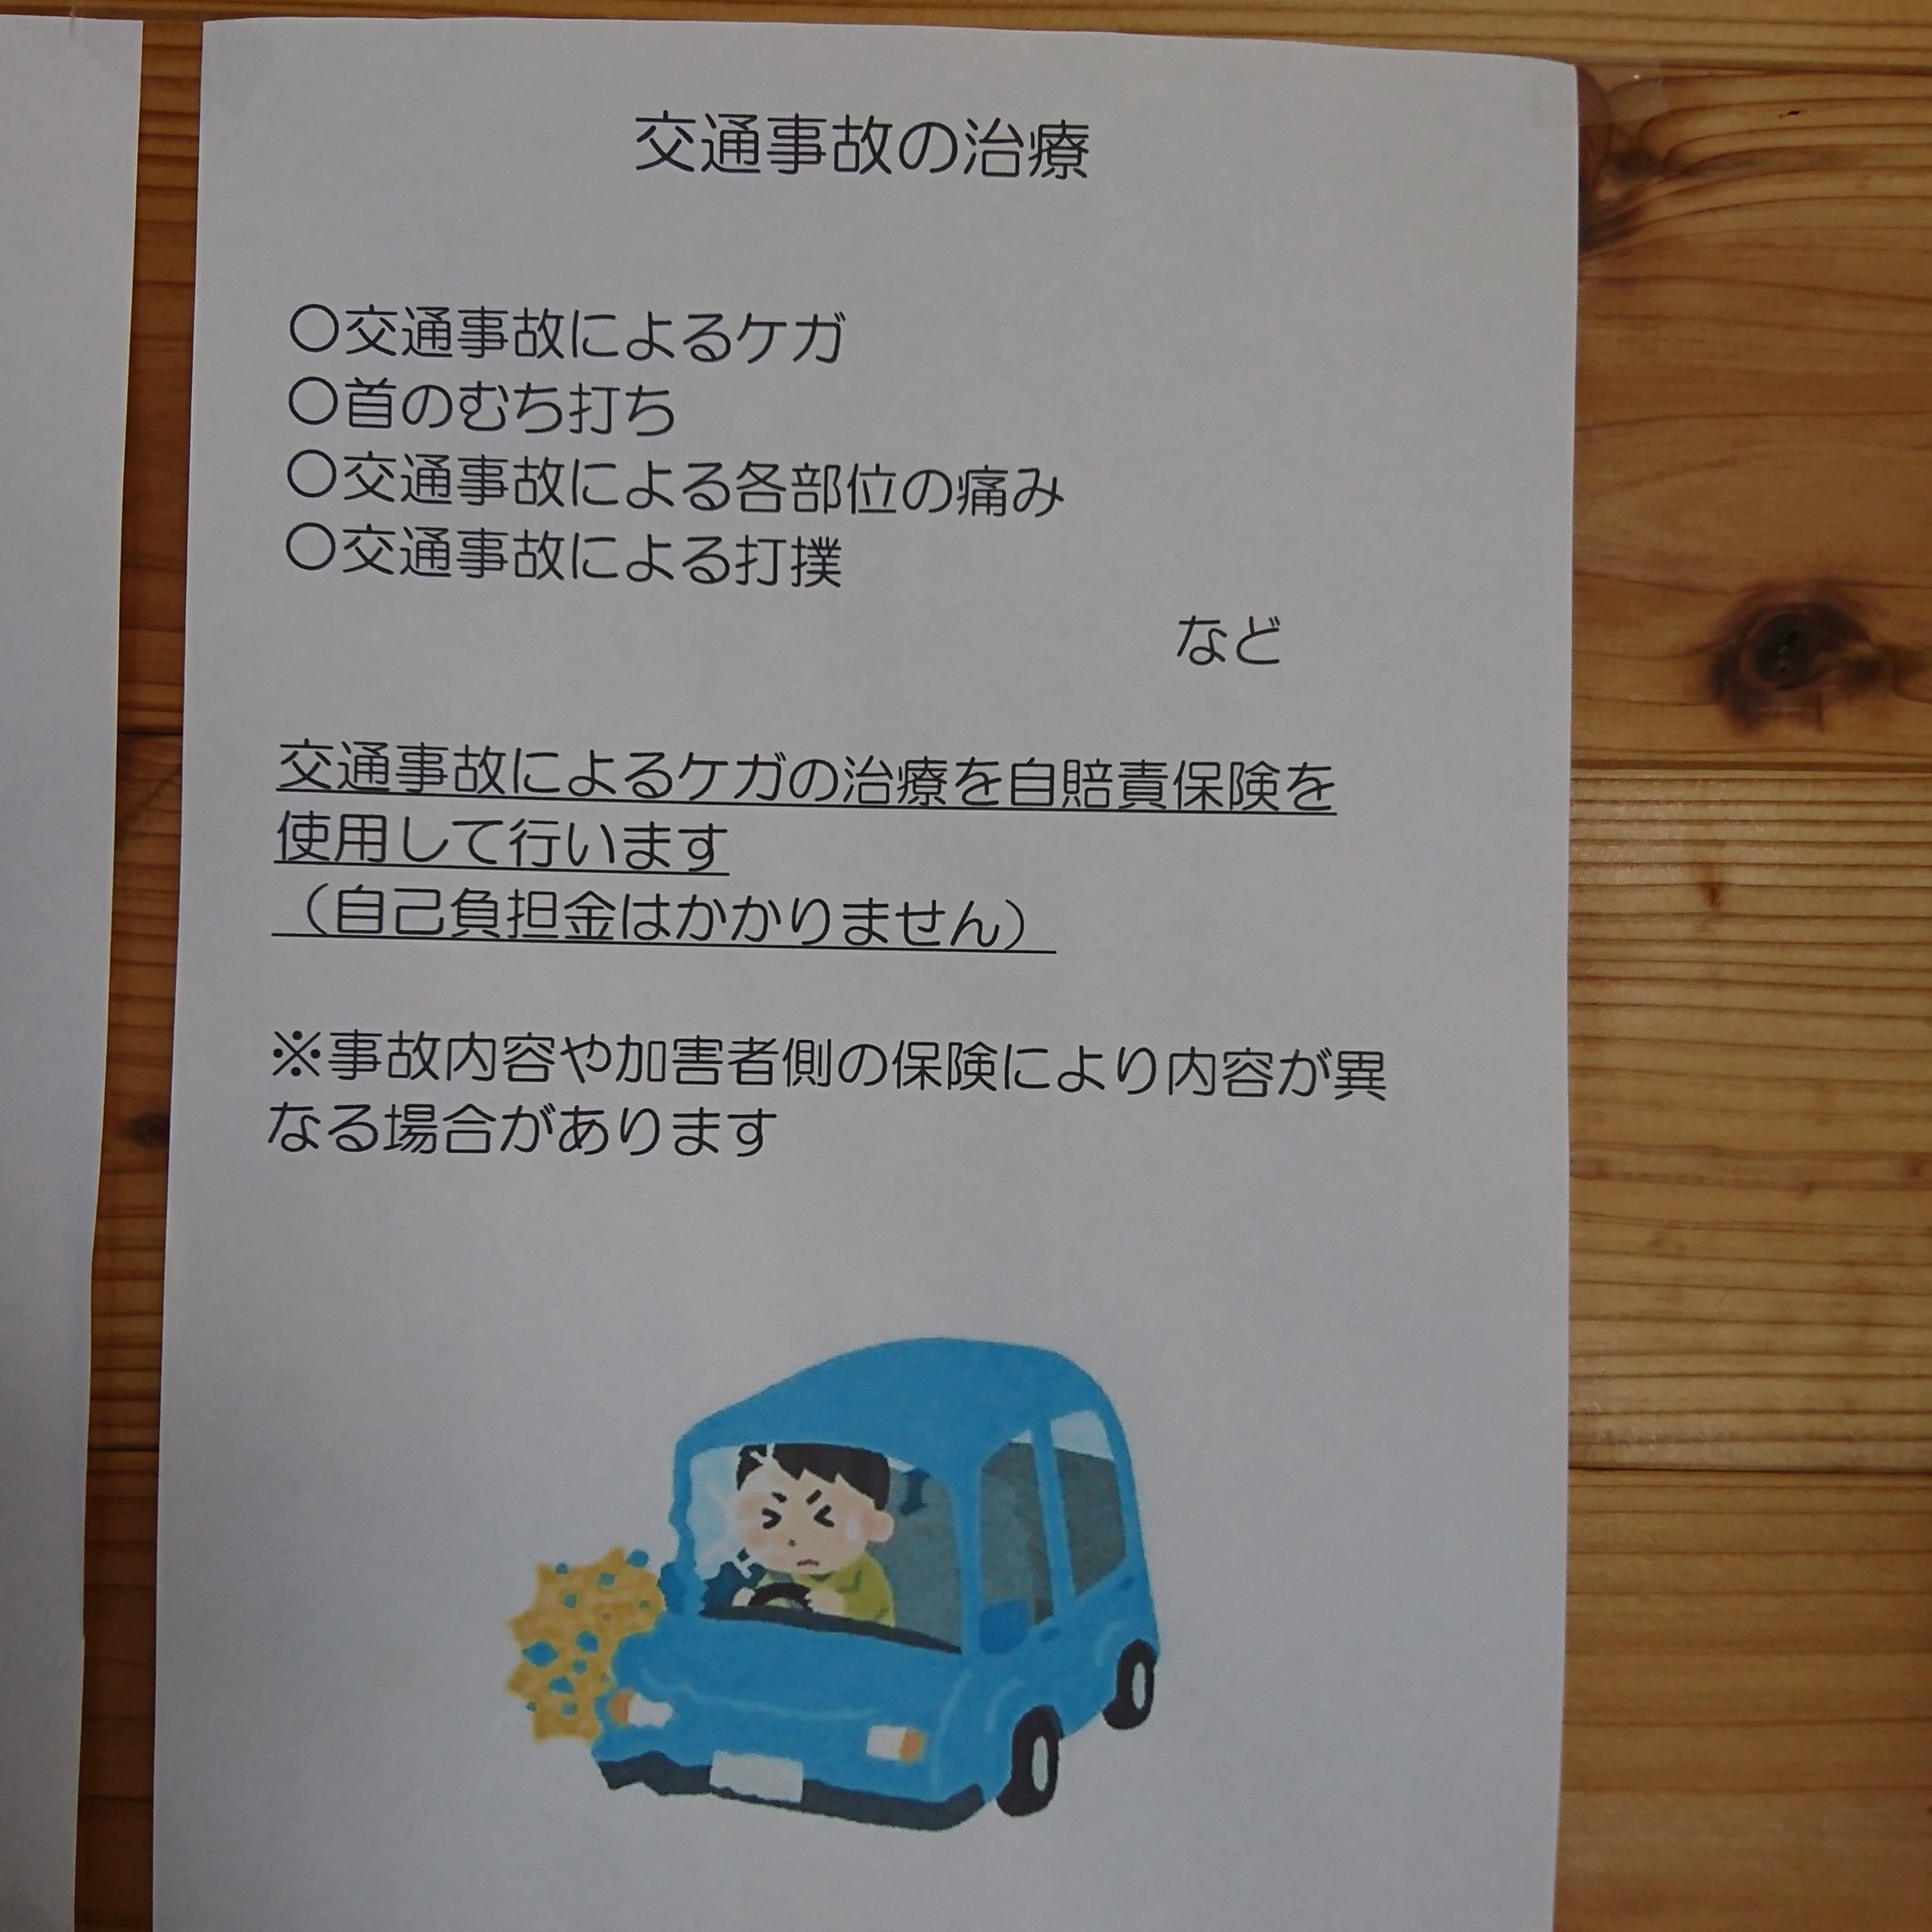 交通事故の治療
○交通事故によるケガ
○首のむち打ち
○交通事故による各部位の痛み
○交通事故による打撲
など
交通事故によるケガの治療を自賠責保険を
使用して行います
（自己負担金はかかりません）
※事故内容や加害者側の保険により内容が異
なる場合があります